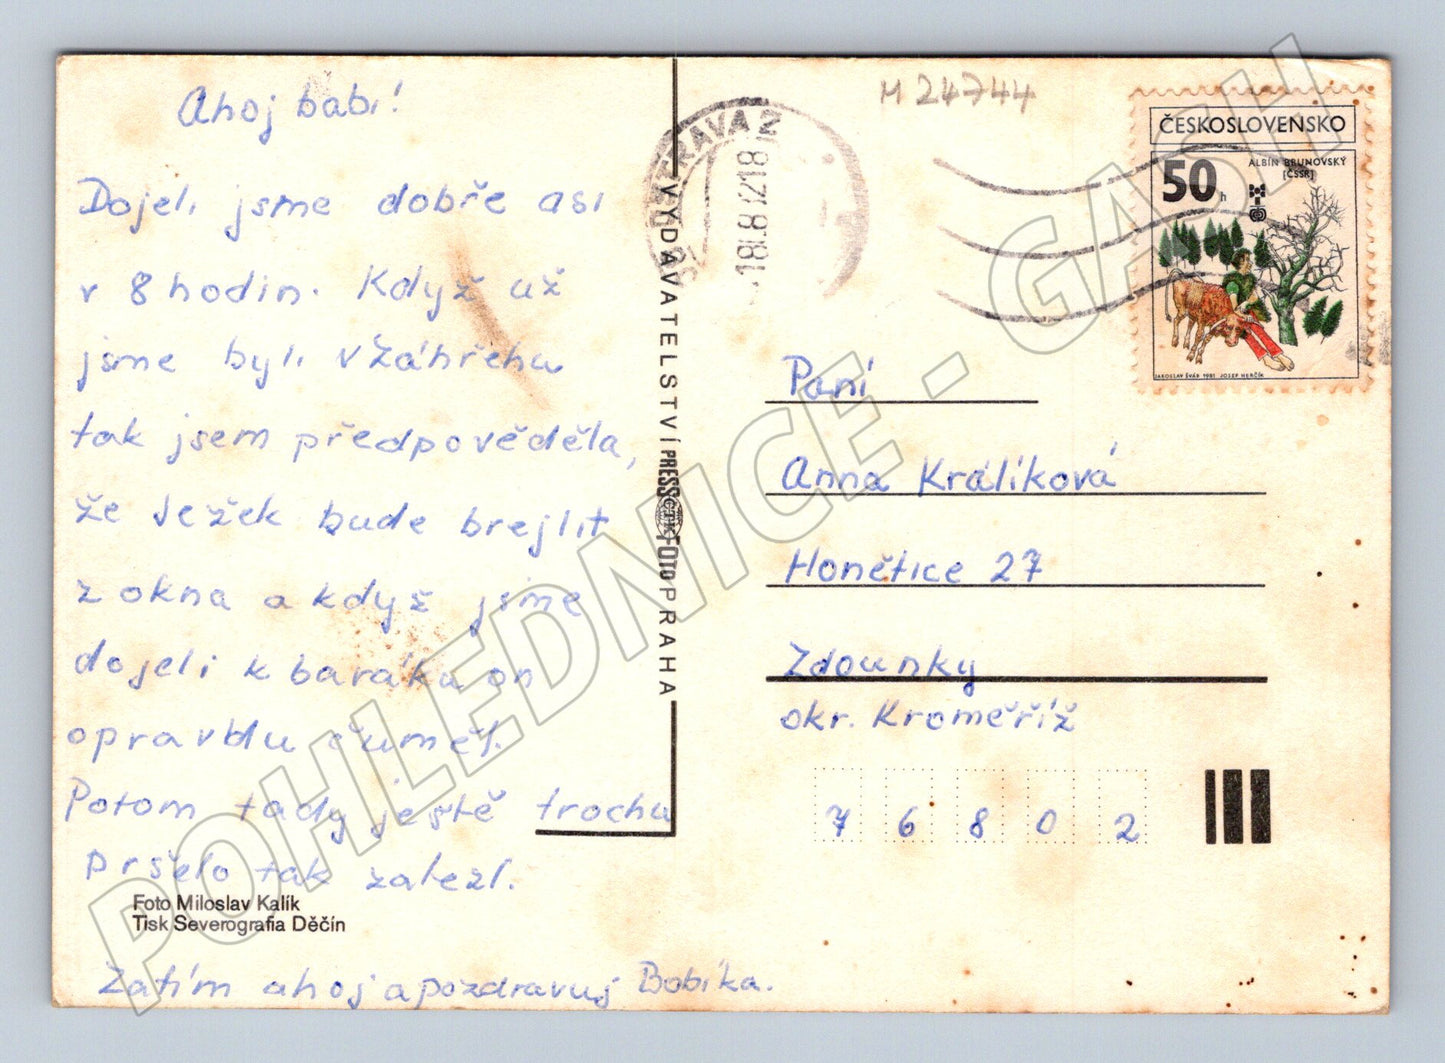 Ahoj babi!
Dojeli jsme dobře asi
v 8 hodin. Když už
jsme byli v Záhřehu
tak jsem předpověděla,
že Ježek bude brejlit
z okna a když jsme
dojeli k baráku on
opravdu čuměl.
Potom tady ještě trochu
pršelo tak zalezl.
Foto Miloslav Kalík
Tisk Severografia Děčín
Zatím ahoj a pozdravuj Bobíka.
VYDAVATELSTVÍ PRESSFOTO PRAHA
ČTK
M 24744
ČESKOSLOVENSKO
ALBÍN BRUNOVSKÝ
[ČSSR]
50 h
JAROSLAV ŠVÁB 1981 JOSEF HERČÍK
Paní
Anna Králíková
Honětice 27
Zdounky
okr. Kroměříž
76802
POHLEDNICE - GASH